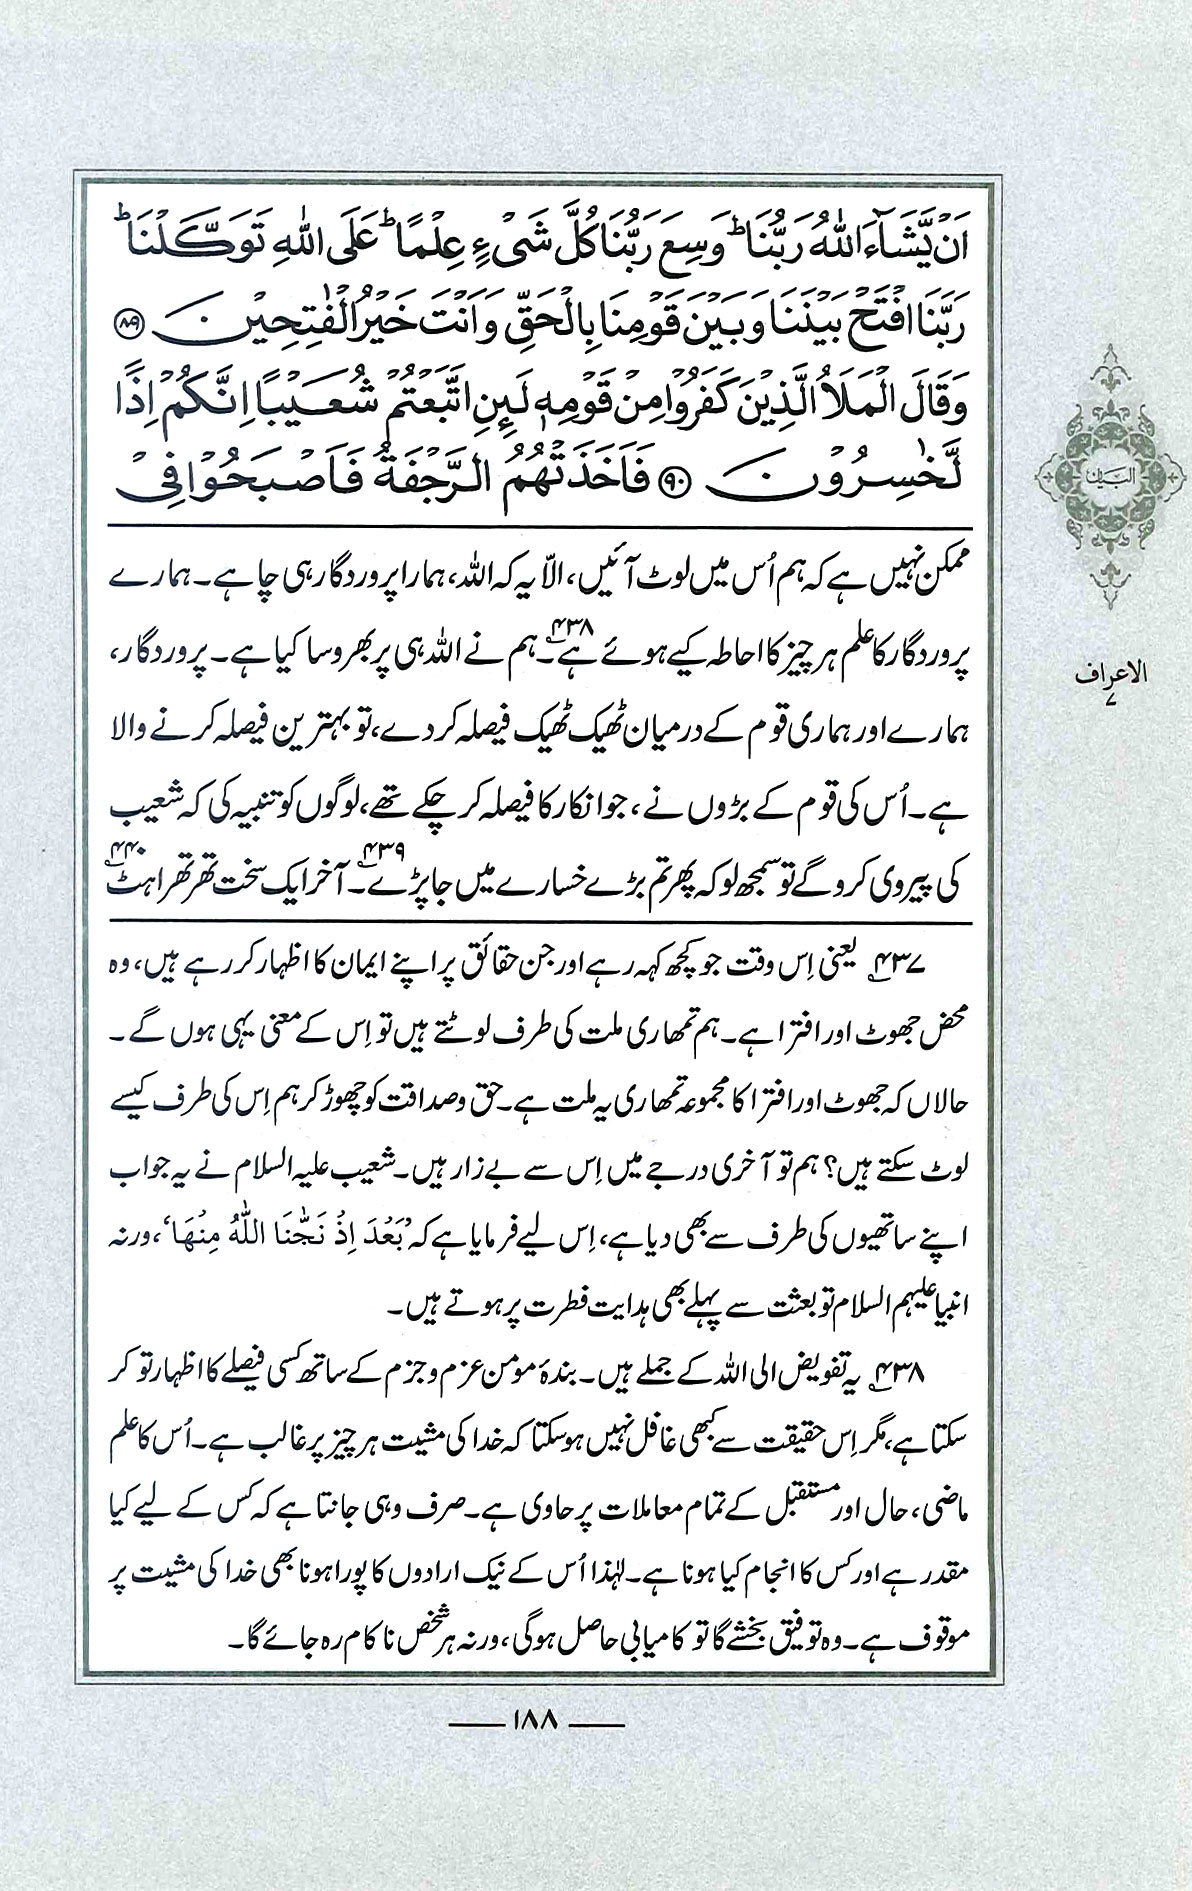 اَنْ يَّشَآءَ اللّٰهُ رَبُّنَا ؕ وَسِعَ رَبُّنَا كُلَّ شَىْءٍ عِلْمًا ؕ عَلَى اللّٰهِ تَوَكَّلْنَا ؕ
رَبَّنَا افْتَحْ بَيْنَنَا وَبَيْنَ قَوْمِنَا بِالْحَقِّ وَاَنْتَ خَيْرُ الْفٰتِحِيْنَ ﴿۸۹﴾
وَقَالَ الْمَلَاُ الَّذِيْنَ كَفَرُوْا مِنْ قَوْمِهٖ لَئِنِ اتَّبَعْتُمْ شُعَيْبًا اِنَّكُمْ اِذًا
لَّخٰسِرُوْنَ ﴿۹۰﴾ فَاَخَذَتْهُمُ الرَّجْفَةُ فَاَصْبَحُوْا فِىْ
ممکن نہیں ہے کہ ہم اُس میں لوٹ آئیں، الّا یہ کہ اللہ، ہمارا پروردگار ہی چاہے۔ ہمارے
پروردگار کا علم ہر چیز کا احاطہ کیے ہوئے ہے۔۴۳۸ ہم نے اللہ ہی پر بھروسا کیا ہے۔ پروردگار،
ہمارے اور ہماری قوم کے درمیان ٹھیک ٹھیک فیصلہ کر دے، تو بہترین فیصلہ کرنے والا
ہے۔ اُس کی قوم کے بڑوں نے، جو انکار کا فیصلہ کر چکے تھے، لوگوں کو تنبیہ کی کہ شعیب
کی پیروی کرو گے تو سمجھ لو کہ پھر تم بڑے خسارے میں جا پڑے۔۴۳۹ آخر ایک سخت تھرتھراہٹ۴۴۰
۴۳۷ یعنی اِس وقت جو کچھ کہہ رہے اور جن حقائق پر اپنے ایمان کا اظہار کر رہے ہیں، وہ
محض جھوٹ اور افترا ہے۔ ہم تمھاری ملت کی طرف لوٹتے ہیں تو اِس کے معنی یہی ہوں گے۔
حالاں کہ جھوٹ اور افترا کا مجموعہ تمھاری یہ ملت ہے۔ حق و صداقت کو چھوڑ کر ہم اِس کی طرف کیسے
لوٹ سکتے ہیں؟ ہم تو آخری درجے میں اِس سے بے زار ہیں۔ شعیب علیہ السلام نے یہ جواب
اپنے ساتھیوں کی طرف سے بھی دیا ہے، اِس لیے فرمایا ہے کہ ’بَعْدَ اِذْ نَجّٰنَا اللّٰهُ مِنْهَا‘، ورنہ
انبیا علیہم السلام تو بعثت سے پہلے بھی ہدایت فطرت پر ہوتے ہیں۔
۴۳۸ یہ تفویض الی اللہ کے جملے ہیں۔ بندۂ مومن عزم و جزم کے ساتھ کسی فیصلے کا اظہار تو کر
سکتا ہے، مگر اِس حقیقت سے کبھی غافل نہیں ہو سکتا کہ خدا کی مشیت ہر چیز پر غالب ہے۔ اُس کا علم
ماضی، حال اور مستقبل کے تمام معاملات پر حاوی ہے۔ صرف وہی جانتا ہے کہ کس کے لیے کیا
مقدر ہے اور کس کا انجام کیا ہونا ہے۔ لہٰذا اُس کے نیک ارادوں کا پورا ہونا بھی خدا کی مشیت پر
موقوف ہے۔ وہ توفیق بخشے گا تو کامیابی حاصل ہو گی، ورنہ ہر شخص ناکام رہ جائے گا۔
البیان
الاعراف
۷
۱۸۸